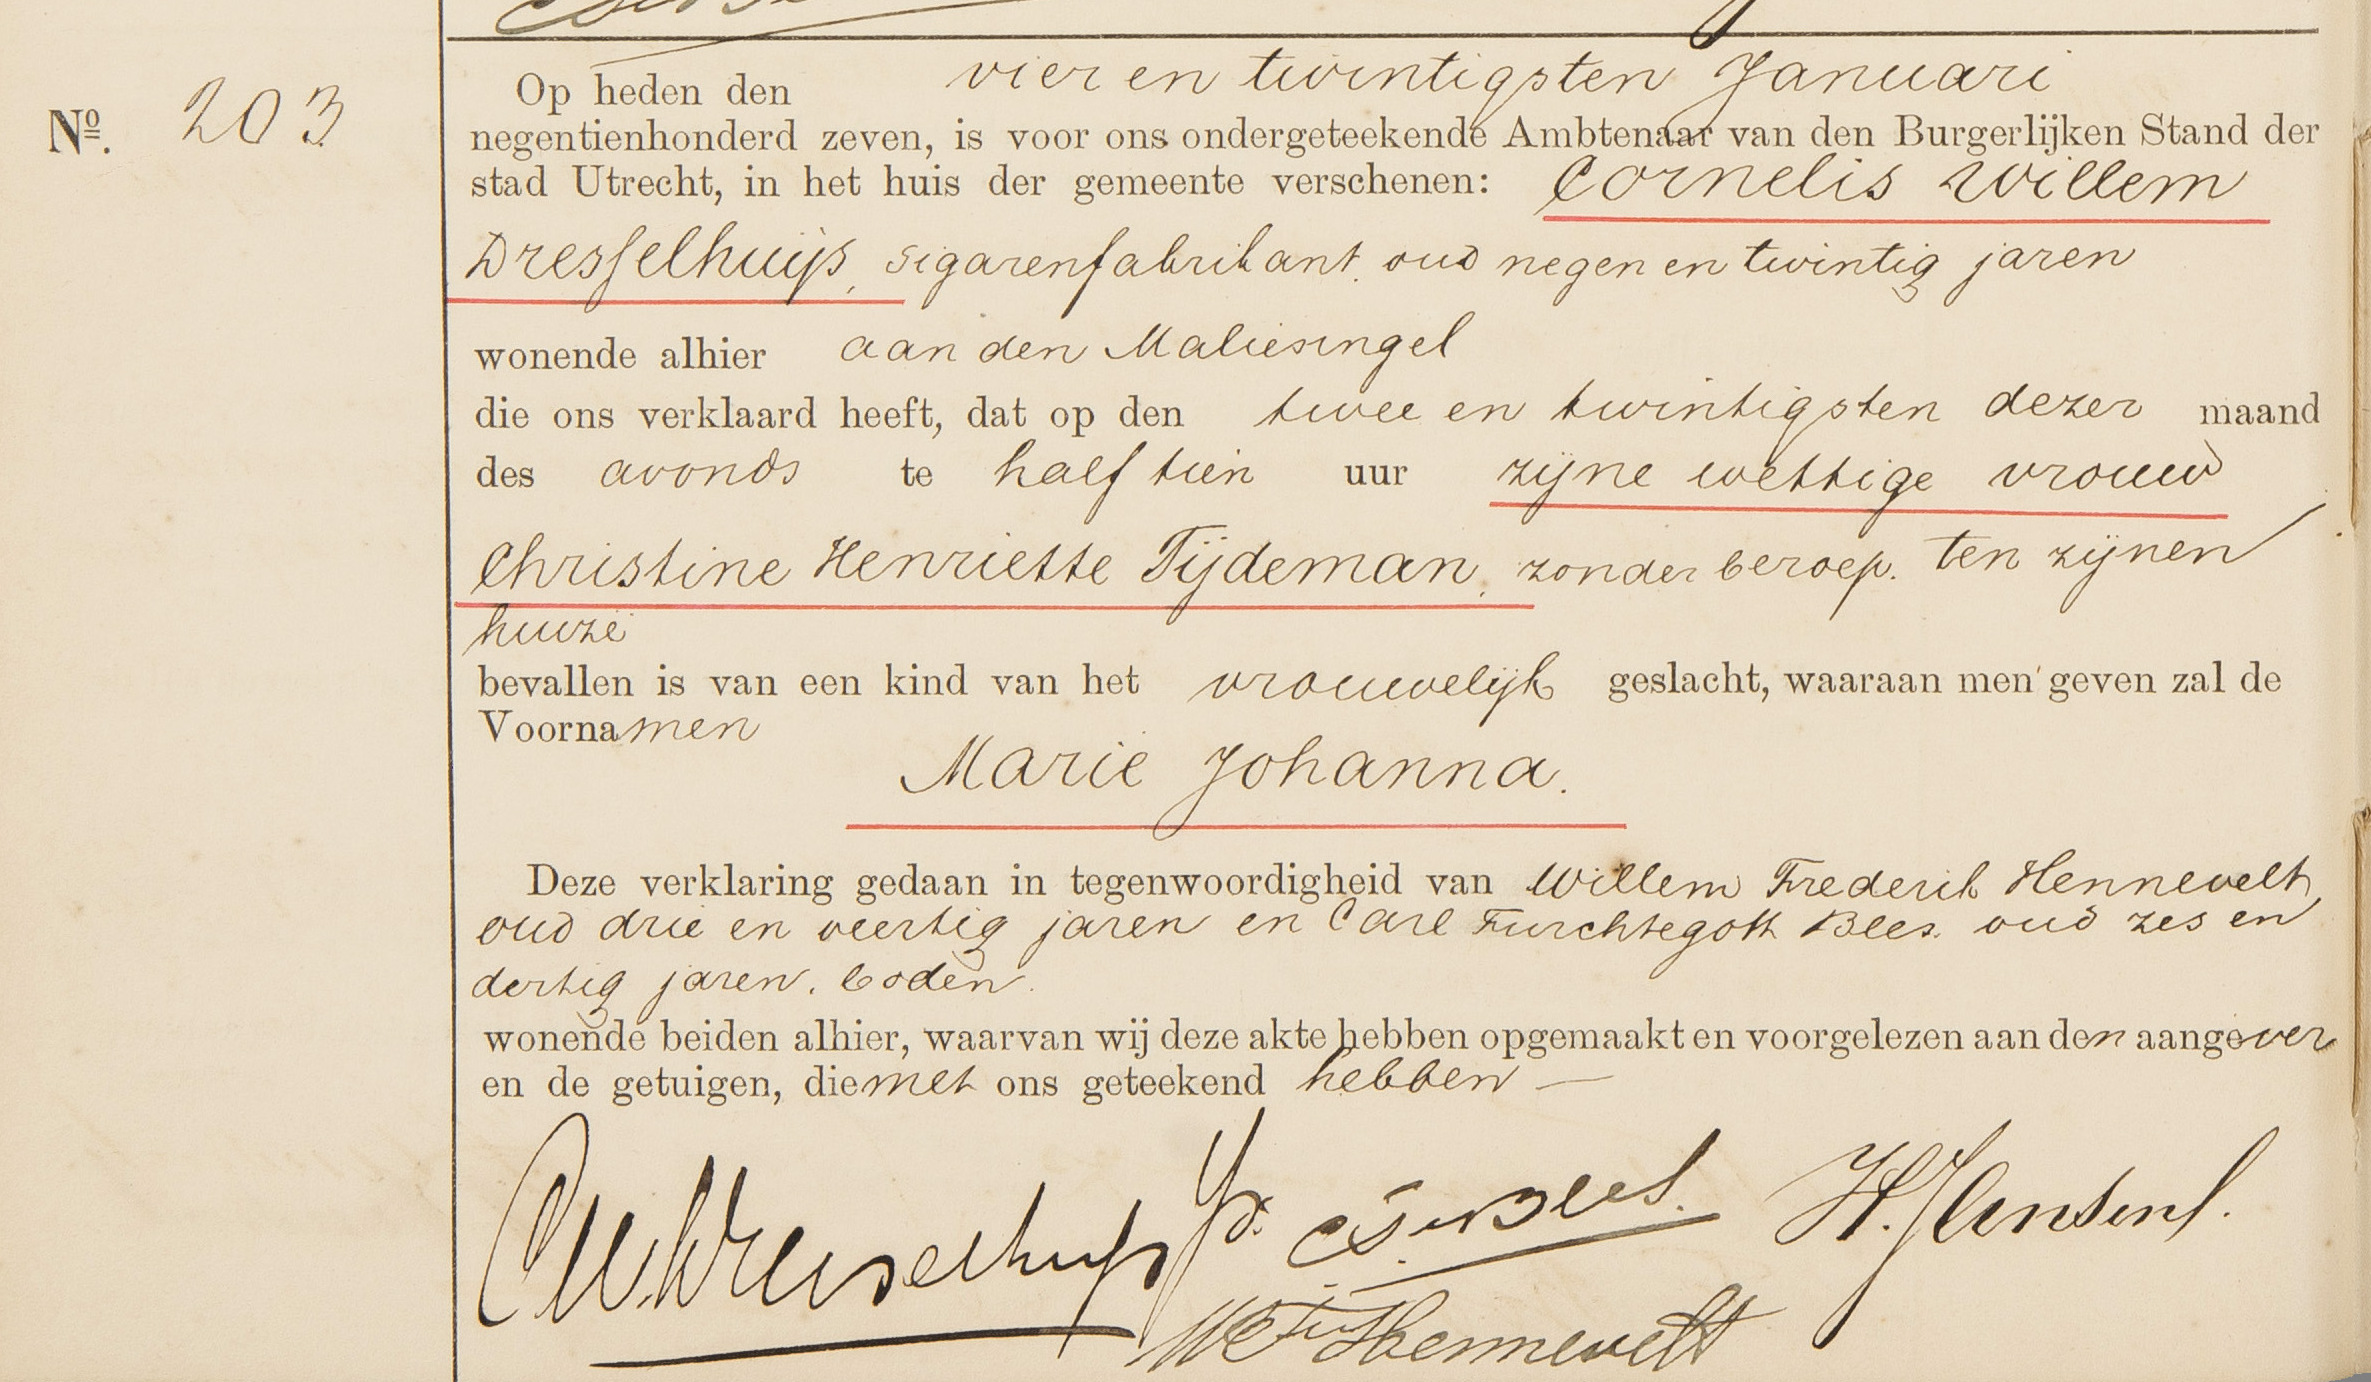 Op heden den vier en twintigsten Januari
Nº. 203
negentienhonderd zeven, is voor ons ondergeteekende Ambtenaar van den Burgerlijken Stand der
stad Utrecht, in het huis der gemeente verschenen: Cornelis Willem
Dresselhuijs, sigarenfabrikant, oud negen en twintig jaren
wonende alhier aan den Maliesingel
die ons verklaard heeft, dat op den twee en twintigsten dezer maand
des avonds te half tien uur zijne wettige vrouw
Christine Henriette Tijdeman, zonder beroep. ten zijnen
huize
bevallen is van een kind van het vrouwelijk geslacht, waaraan men geven zal de
Voornamen
Marie Johanna.
Deze verklaring gedaan in tegenwoordigheid van Willem Frederik Hennevelt,
oud drie en veertig jaren en Carl Furchtegott Bles. oud zes en
dertig jaren, boden.
wonende beiden alhier, waarvan wij deze akte hebben opgemaakt en voorgelezen aan den aangever
en de getuigen, die met ons geteekend hebben —
CW Dresselhuijs
WF Hennevelt